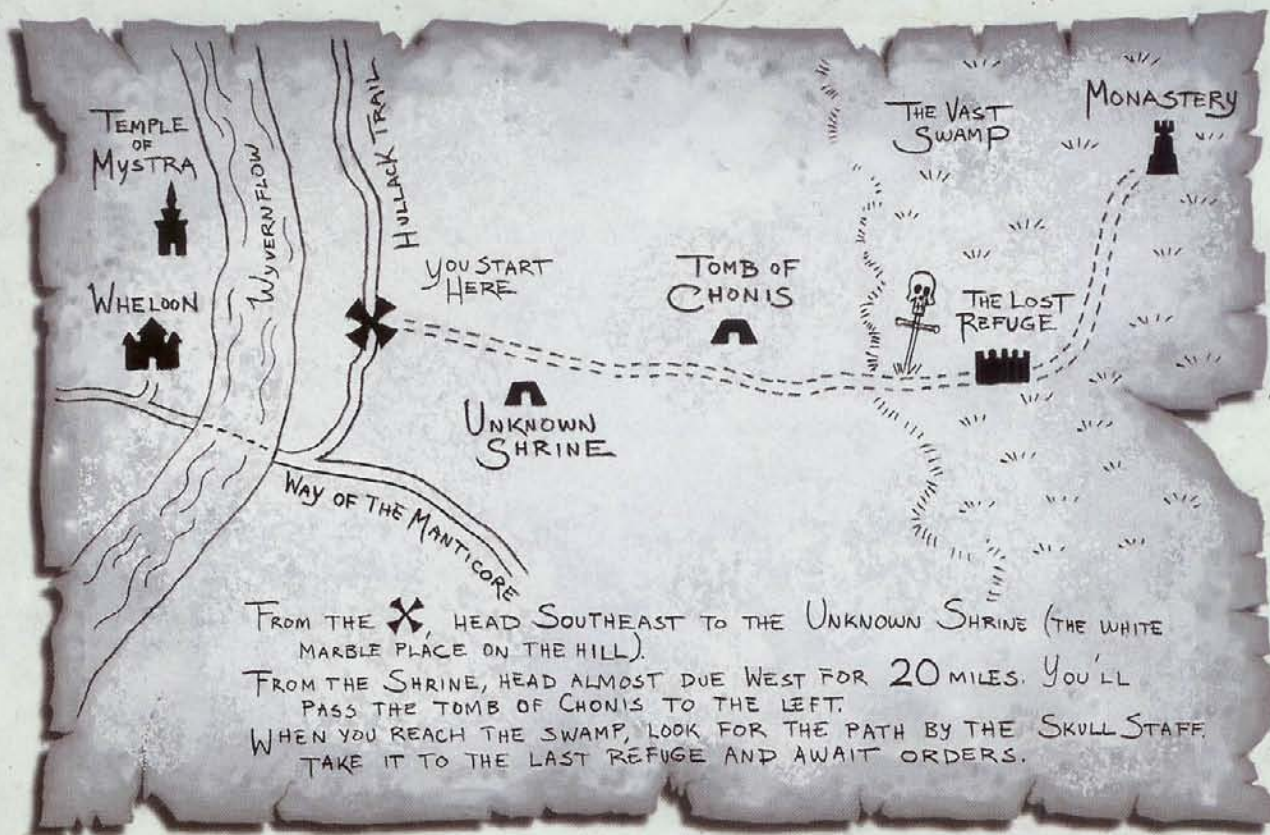 TEMPLE
OF
MYSTRA
WYVERNFLOW
HULLACK TRAIL
THE VAST
SWAMP
MONASTERY
WHELOON
YOU START
HERE
TOMB OF
CHONIS
THE LOST
REFUGE
UNKNOWN
SHRINE
WAY OF THE MANTICORE
FROM THE , HEAD SOUTHEAST TO THE UNKNOWN SHRINE (THE WHITE
MARBLE PLACE ON THE HILL).
FROM THE SHRINE, HEAD ALMOST DUE WEST FOR 20 MILES. YOU'LL
PASS THE TOMB OF CHONIS TO THE LEFT.
WHEN YOU REACH THE SWAMP, LOOK FOR THE PATH BY THE SKULL STAFF.
TAKE IT TO THE LAST REFUGE AND AWAIT ORDERS.